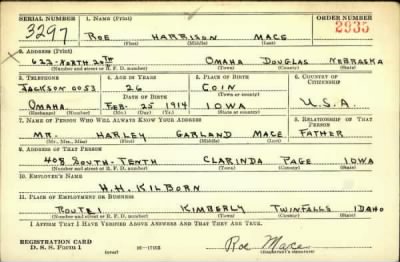 SERIAL NUMBER 1. NAME (Print) ORDER NUMBER
3297 ROE HARRISON MACE 2935
(First) (Middle) (Last)
2. ADDRESS (Print)
622 - NORTH 20TH OMAHA DOUGLAS NEBRASKA
(Number and street or R. F. D. number) (Town) (County) (State)
3. TELEPHONE 4. AGE IN YEARS 5. PLACE OF BIRTH 6. COUNTRY OF CITIZENSHIP
JACKSON 0053 26 COIN
DATE OF BIRTH (Town or county)
OMAHA FEB. 25 1914 IOWA U.S.A.
(Exchange) (Number) (Mo.) (Day) (Yr.) (State or country)
7. NAME OF PERSON WHO WILL ALWAYS KNOW YOUR ADDRESS 8. RELATIONSHIP OF THAT PERSON
MR. HARLEY GARLAND MACE FATHER
(Mr., Mrs., Miss) (First) (Middle) (Last)
9. ADDRESS OF THAT PERSON
408 SOUTH-TENTH CLARINDA PAGE IOWA
(Number and street or R. F. D. number) (Town) (County) (State)
10. EMPLOYER'S NAME
H.H. KILBORN
11. PLACE OF EMPLOYMENT OR BUSINESS
ROUTE 1 KIMBERLY TWINFALLS IDAHO
(Number and street or R. F. D. number) (Town) (County) (State)
I AFFIRM THAT I HAVE VERIFIED ABOVE ANSWERS AND THAT THEY ARE TRUE.
REGISTRATION CARD
D. S. S. FORM 1 (over) Roe Mace
(Registrant's signature)